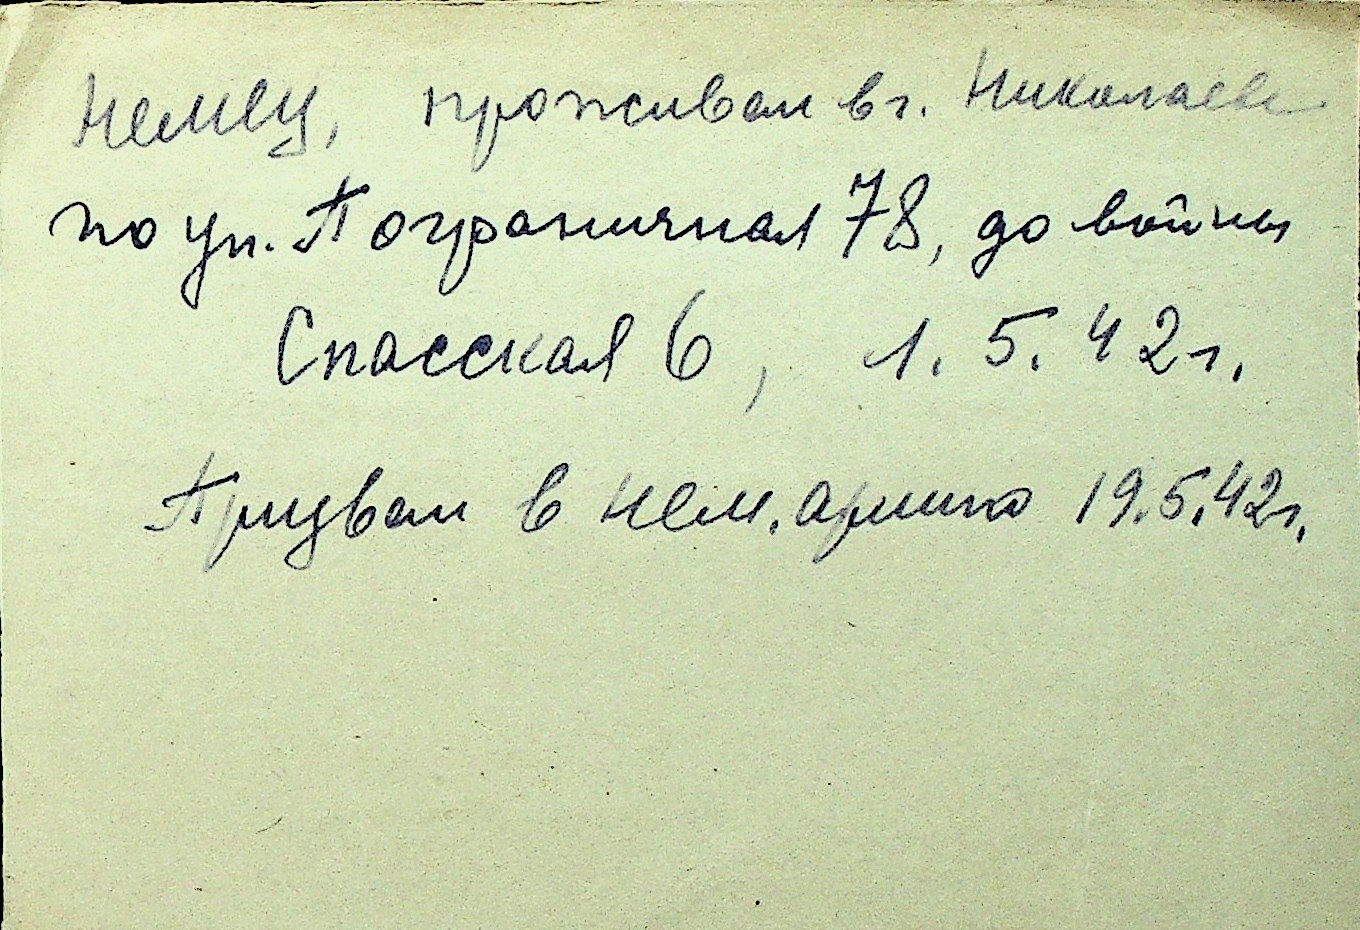 Немец, проживал в г. Николаеве
по ул. Пограничная 78, до войны
Спасская 6, 1.5.42г.
Призван в нем. армию 19.5.42г.